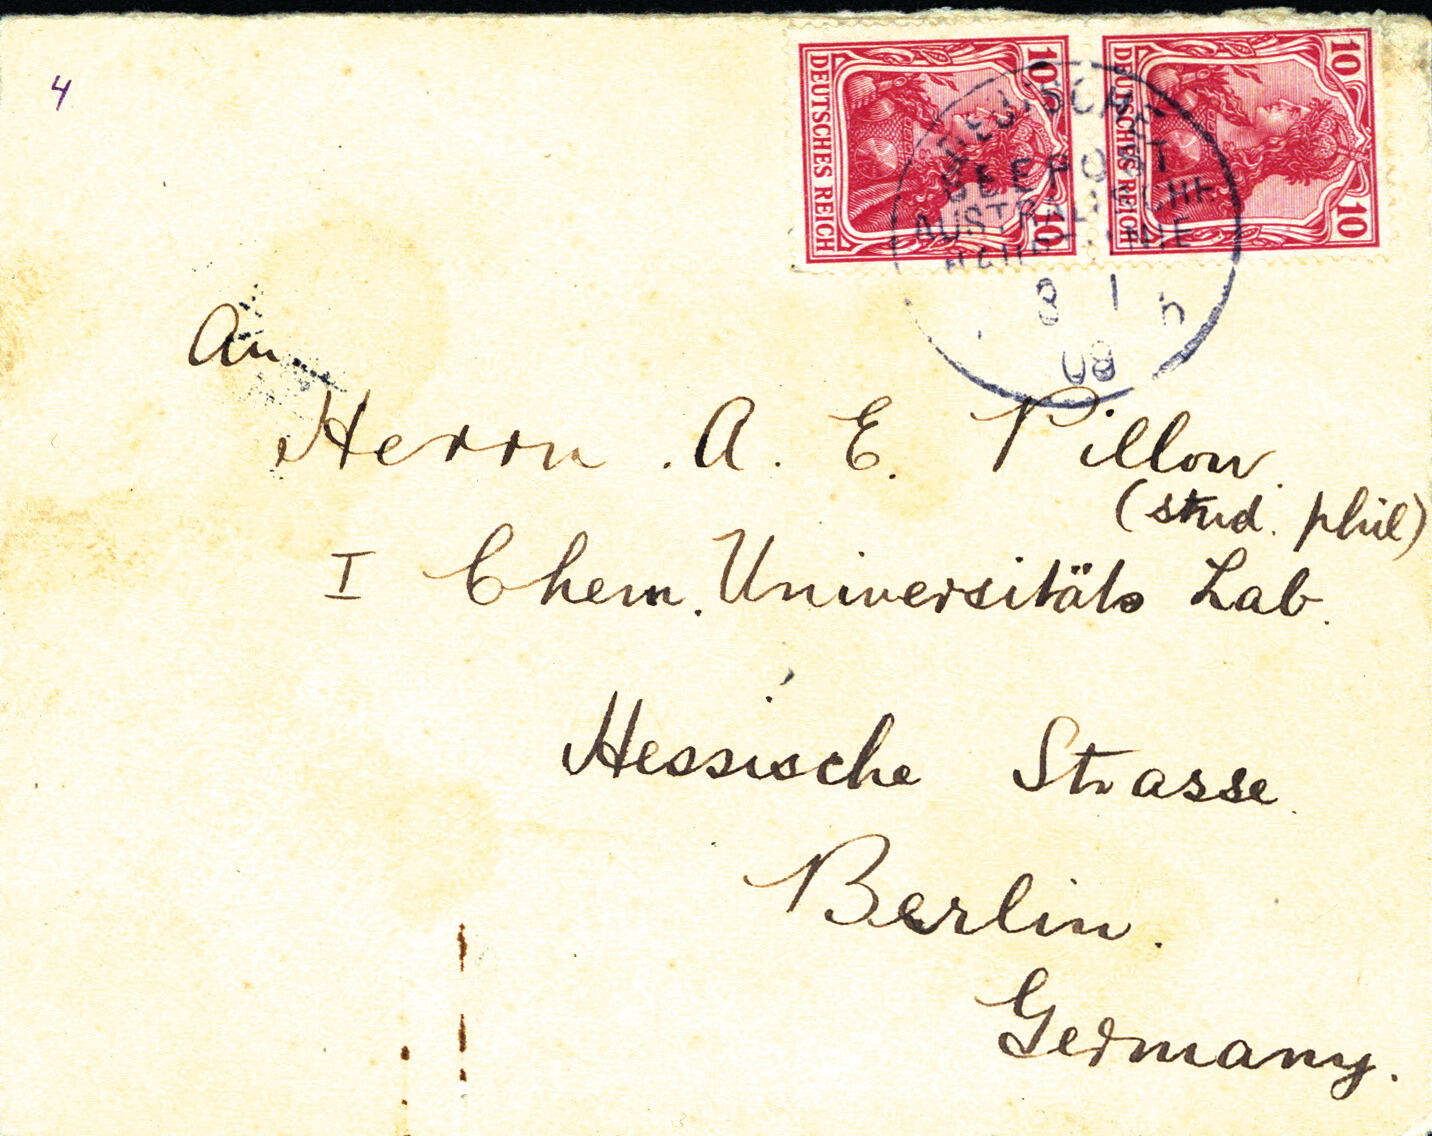 4
10 DEUTSCHES REICH 10
10 DEUTSCHES REICH 10
DEUTSCHE
SEEPOST
AUSTRALISCHE
HAUPTLINIE
8 1
08
An
Herrn A. E. Pillow.
(stud. phil)
I Chem. Universitäts Lab.
Hessische Strasse
Berlin.
Germany.